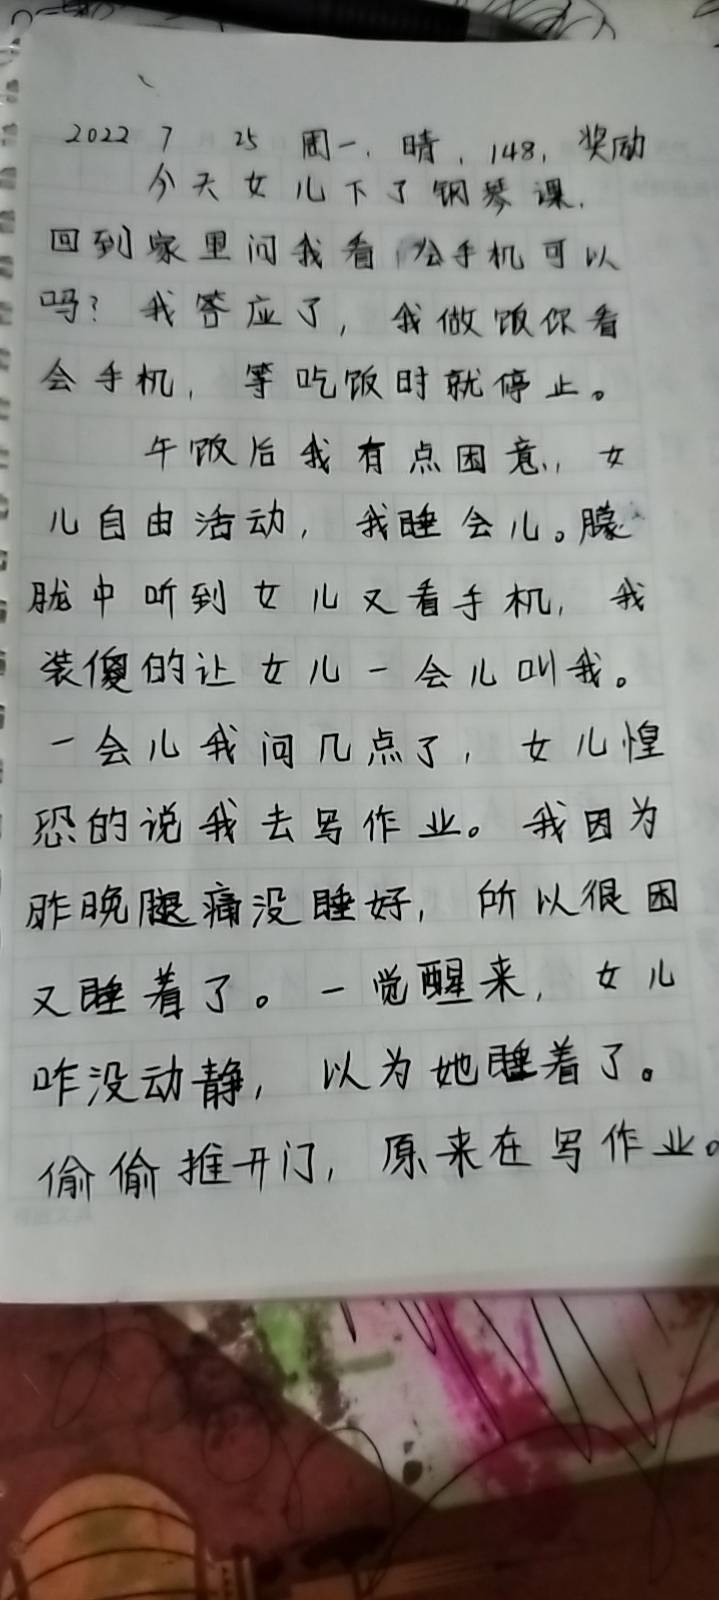 2022 7 25 周一，晴，148，奖励
今天女儿下了钢琴课，
回到家里问我看会手机可以
吗？我答应了，我做饭你看
会手机，等吃饭时就停止。
午饭后我有点困意，女
儿自由活动，我睡会儿。朦
胧中听到女儿又看手机，我
装傻的让女儿一会儿叫我。
一会儿我问几点了，女儿惶
恐的说我去写作业。我因为
昨晚腿痛没睡好，所以很困
又睡着了。一觉醒来，女儿
咋没动静，以为她睡着了。
偷偷推开门，原来在写作业。